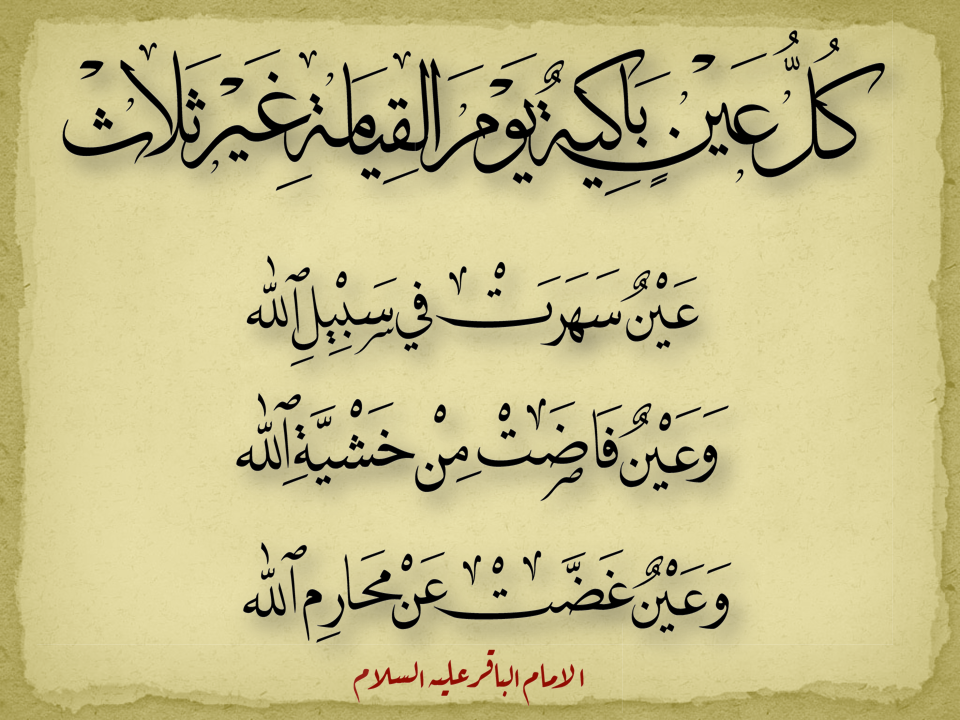 كُلُّ عَيْنٍ بَاكِيَةٌ يَوْمَ القِيَامَةِ غَيْرَ ثَلاثْ
عَيْنٌ سَهَرَتْ في سَبِيْلِ ٱللّٰه
وَعَيْنٌ فَاضَتْ مِنْ خَشْيَّةِ ٱللّٰه
وَعَيْنٌ غَضَّتْ عَنْ مَحَارِمِ ٱللّٰه
الامام الباقر عليه السلام